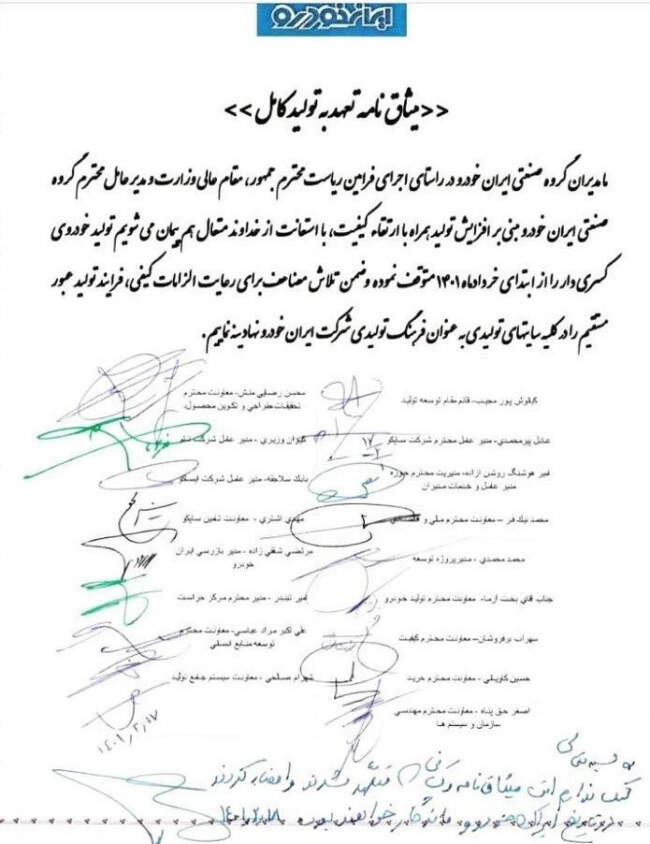 ایران خودرو
<<میثاق نامه تعهد به تولید کامل>>
ما مدیران گروه صنعتی ایران خودرو در راستای اجرای فرامین ریاست محترم جمهور، مقام عالی وزارت و مدیر عامل محترم گروه
صنعتی ایران خودرو مبنی بر افزایش تولید همراه با ارتقاء کیفیت، با استعانت از خداوند متعال هم پیمان می شویم تولید خودروی
کسری دار را از ابتدای خرداد ماه ۱۴۰۱ متوقف نموده و ضمن تلاش مضاعف برای رعایت الزامات کیفی، فرایند تولید عبور
مستقیم را در کلیه سایتهای تولیدی به عنوان فرهنگ تولیدی شرکت ایران خودرو نهادینه نماییم.
کیانوش پور مجیب- قائم مقام توسعه تولید
محسن رضایی منش- معاونت محترم
تحقیقات طراحی و تکوین محصول
عادل پیرمحمدی- مدیر عامل محترم شرکت ساپکو
کیوان وزیری - مدیر عامل شرکت تام
امیر هوشنگ روشن آزاده- مدیریت محترم حوزه
مدیر عامل و خدمات مدیران
بابک سلاجقه- مدیر عامل شرکت ایسکو
محمد نیک فر – معاونت محترم مالی و
مهدی اشتری - معاونت تامین ساپکو
محمد محمدی - مدیرپروژه توسعه
مرتضی شفیع زاده - مدیر بازرسی ایران
خودرو
جناب آقای بخت آزما- معاونت محترم تولید خودرو
امیر تبندر - مدیر محترم مرکز حراست
سهراب برفروشان– معاونت محترم کیفیت
علی اکبر مراد عباسی- معاونت محترم
توسعه منابع انسانی
حسین کاویانی - معاونت محترم خرید
شهرام صالحی - معاونت سیستم جامع تولید
اصغر حق پناه - معاونت محترم مهندسی
سازمان و سیستم ها
۱۴۰۱,۲,۱۷
شک ندارم این میثاق نامه متعهد شدند و امضا کردند
در تاریخ ایران خودرو ماندگار خواهند بود. ۱۴۰۱,۲,۱۸